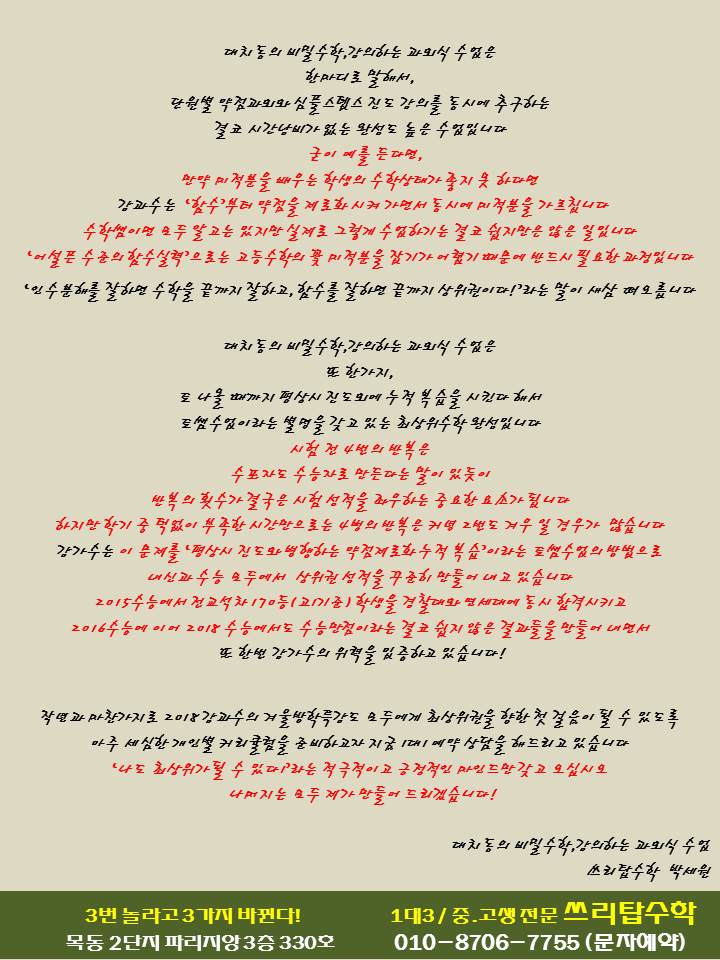 대치동의 비밀수학,강의하는 과외식 수업은
한마디로 말해서,
단원별 약점과외와 심플스텝스 진도 강의를 동시에 추구하는
결코 시간낭비가 없는 완성도 높은 수업입니다
굳이 예를 든다면,
만약 미적분을 배우는 학생의 수학상태가 좋지 못 하다면
강과수는 '함수'부터 약점을 제로화 시켜 가면서 동시에 미적분을 가르칩니다
수학쌤이면 모두 알고는 있지만 실제로 그렇게 수업하기는 결코 쉽지만은 않은 일입니다
'어설픈 수준의 함수실력'으로는 고등수학의 꽃 미적분을 잡기가 어렵기 때문에 반드시 필요한 과정입니다
'인수분해를 잘하면 수학을 끝까지 잘하고, 함수를 잘하면 끝까지 상위권이다!'라는 말이 새삼 떠오릅니다
대치동의 비밀수학,강의하는 과외식 수업은
또 한가지,
토 나올 때까지 평상시 진도외에 누적 복습을 시킨다 해서
토쌤수업이라는 별명을 갖고 있는 최상위수학 완성입니다
시험 전 4번의 반복은
수포자도 수능자로 만든다는 말이 있듯이
반복의 횟수가 결국은 시험 성적을 좌우하는 중요한 요소가 됩니다
하지만 학기 중 턱없이 부족한 시간만으로는 4번의 반복은 커녕 2번도 겨우 일 경우가 많습니다
강과수는 이 문제를 '평상시 진도와 병행하는 약점제로화 누적 복습'이라는 토쌤수업의 방법으로
내신과 수능 모두에서 상위권 성적을 꾸준히 만들어 내고 있습니다
2015수능에서 전교석차 170등(고1기준) 학생을 경찰대와 연세대에 동시 합격시키고
2016수능에 이어 2018 수능에서도 수능만점이라는 결코 쉽지 않은 결과들을 만들어 내면서
또 한번 강과수의 위력을 입증하고 있습니다!
작년과 마찬가지로 2018 강과수의 겨울방학특강도 모두에게 최상위권을 향한 첫 걸음이 될 수 있도록
아주 세심한 개인별 커리큘럼을 준비하고자 지금 1대1 예약 상담을 해드리고 있습니다
'나도 최상위가 될 수 있다!'라는 적극적이고 긍정적인 마인드만 갖고 오십시오
나머지는 모두 제가 만들어 드리겠습니다!
대치동의 비밀수학,강의하는 과외식 수업
쓰리탑수학 박세원
3번 놀라고 3가지 바뀐다! 1대3 / 중.고생 전문 쓰리탑수학
목동 2단지 파리지앙 3층 330호 010-8706-7755 (문자예약)